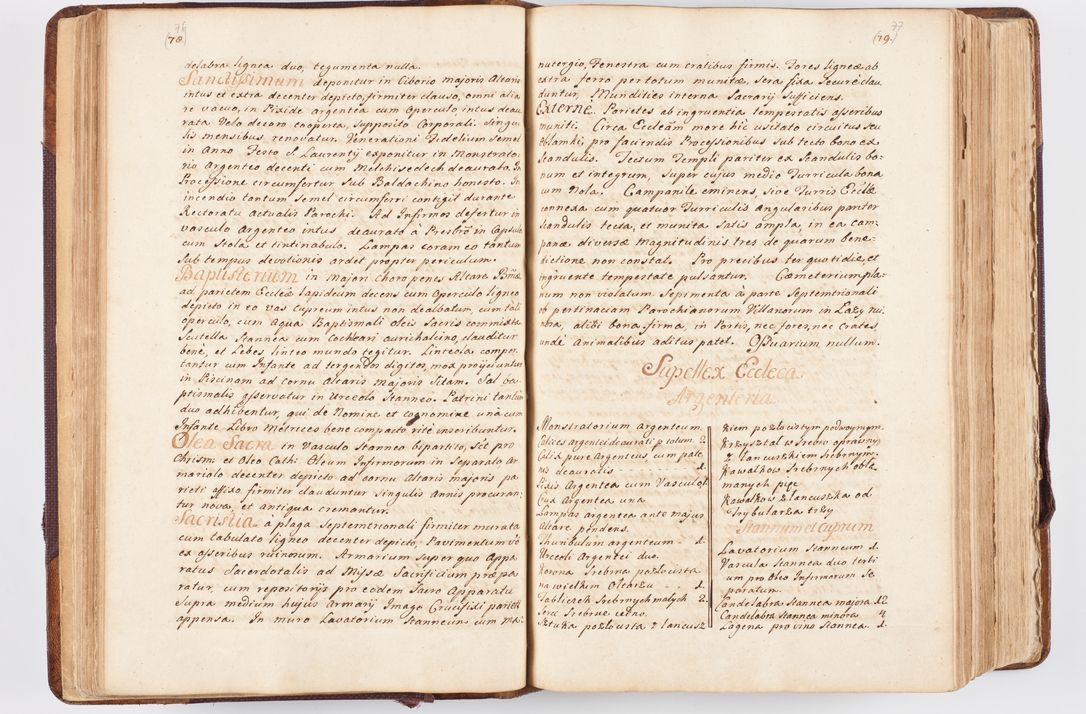 76
(78.)
delabra lignea duo, tegumenta nulla.
Sanctissimum deponitur in Ciborio majoris Altaris
intus et extra decenter depicto, firmiter clauso, omni alia
re vacuo, in Pixide argentea cum Operculo, intus deau
rata Velo decoro cooperta, supposito Corporali. Singu
lis mensibus renovatur. Venerationi Fidelium semel
in Anno Festo S. Laurentij exponitur in Monstrato
rio Argenteo decenti cum Melchisedech deaurato. In
Processione circumfertur sub Baldachino honesto. In
incendio tantum semel circumferri contigit durante
Rectoratu actualis Parochi. Ad Infirmos defertur in
vasculo Argenteo intus deaurato à Presbro in Capsula
cum Stola et tintinabulo. Lampas coram eo tantum
sub tempus devotionis ardet propter periculum.
Baptisterium in majori Choro penes Altare
ad parietem Eccleæ lapideum decens cum Operculo ligneo
depicto in eo vas cupreum intus non dealbatum, cum tali
operculo, cum Aqua Baptismali oleis Sacris commixta
Scutella Stannea cum Cochleari aurichalcino, clauditur
bene, et Lebes linteo mundo tegitur. Linteola compor
tantur cum Infante ad tergendos digitos, mox projiciuntur
in Piscinam ad cornu Altaris Majoris sitam. Sal ba
ptismalis asservatur in Urceolo Stanneo. Patrini tantum
duo adhibentur, qui de Nomine et cognomine una cum
Infante Libro Metrices bene compacto ritè inscribuntur.
Olea Sacra in Vasculo Stanneo bipartito, scil: pro
Chrism: et Oleo Cath: Oleum Infirmorum in Separato, Ar
mariolo decenter depicto ad cornu Altaris majoris pa
rieti affixo firmiter clauduntur Singulis Annis procuran
tur nova, et antiqua cremantur.
Sacristia à plaga Septemtrionali firmiter murata
cum tabulato ligneo decenter depicto, Pavimentum vo
ex asseribus ruinosum. Armarium super quo Appa
ratus Sacerdotalis ad Missæ Sacrificium præpa
ratur, cum repositorijs pro eodem Sacro Apparatu
Supra medium hujus Armarij Imago Crucifixi parieti
appensa. In muro Lavatorium Stanneum cum ma:
77
(79.)
nutergio, Fenestra cum cratibus firmis. Fores ligneæ ab
extra ferro per totum munitæ, sera fixa securè clau
duntur, Mundities interna Sacrarij Sufficiens.
Externè. Parietes ab ingruentia tempestatis asseribus
muniti. Circa Eccleam more hic usitato circuitus seu
Oblamki, pro faciendis Processionibus sub tecto bono ex
Scandulis. Tectum Templi pariter ex Scandulis bo
num et integrum, super cujus medio Turricula bona
cum Nola. Campanile eminens, sive Turris Eccleæ
connexa cum quatuor Turriculis angularibus pariter
Scandulis tecta, et munita satis ampla in ea cam
panæ diversæ magnitudinis tres de quarum bene
dictione non constat. Pro precibus ter quotidie, et
ingruente tempestate pulsantur. Cæmeterium pla
num non violatum. Sepimenta à parte Septemtrionali
ob pertinaciam Parochianorum Villanorum in Lazy rui
nosa, alibi bona firma, in Portis, nec fores, nec Crates,
unde animalibus aditus patet. Ossuarium nullum.
Supellex Eccleca
Argenteria
Monstratorium argenteum
Calices argentei deaurati p totum. 2.
Calix pure Argenteus cum pate
na deauratis 1.
Pixis Argentea cum Vasculo 1
Crux Argentea una
Lampas argentea ante majus
Altare pendens.
Thuribulum argenteum 1.
Urceoli Argentei duo.
Korona Srebrna pozłocista
na wielkim Ołtarzu 1.
Tabliczek Srebrnych małych 2.
Serce Srebrne iedno.
Sztuka pozłocista z lancusz
kiem pozłocistym podwoynym.
Krzyształ w Srebro oprawny
z Łancuszkiem Srebrnym.
Kawałkow Srebrnych obła
manych pięc
Kawałkow z lancuszka od
Trybularza trzy
Stannum et Cuprum
Lavatorium Stanneum 1.
Vascula Stannea duo terti
um pro Oleo Infirmorum Se
paratum.
Candelabra Stannea majora 12
Candelabra Stannea minora
Lagena pro vino Stannea. 1.